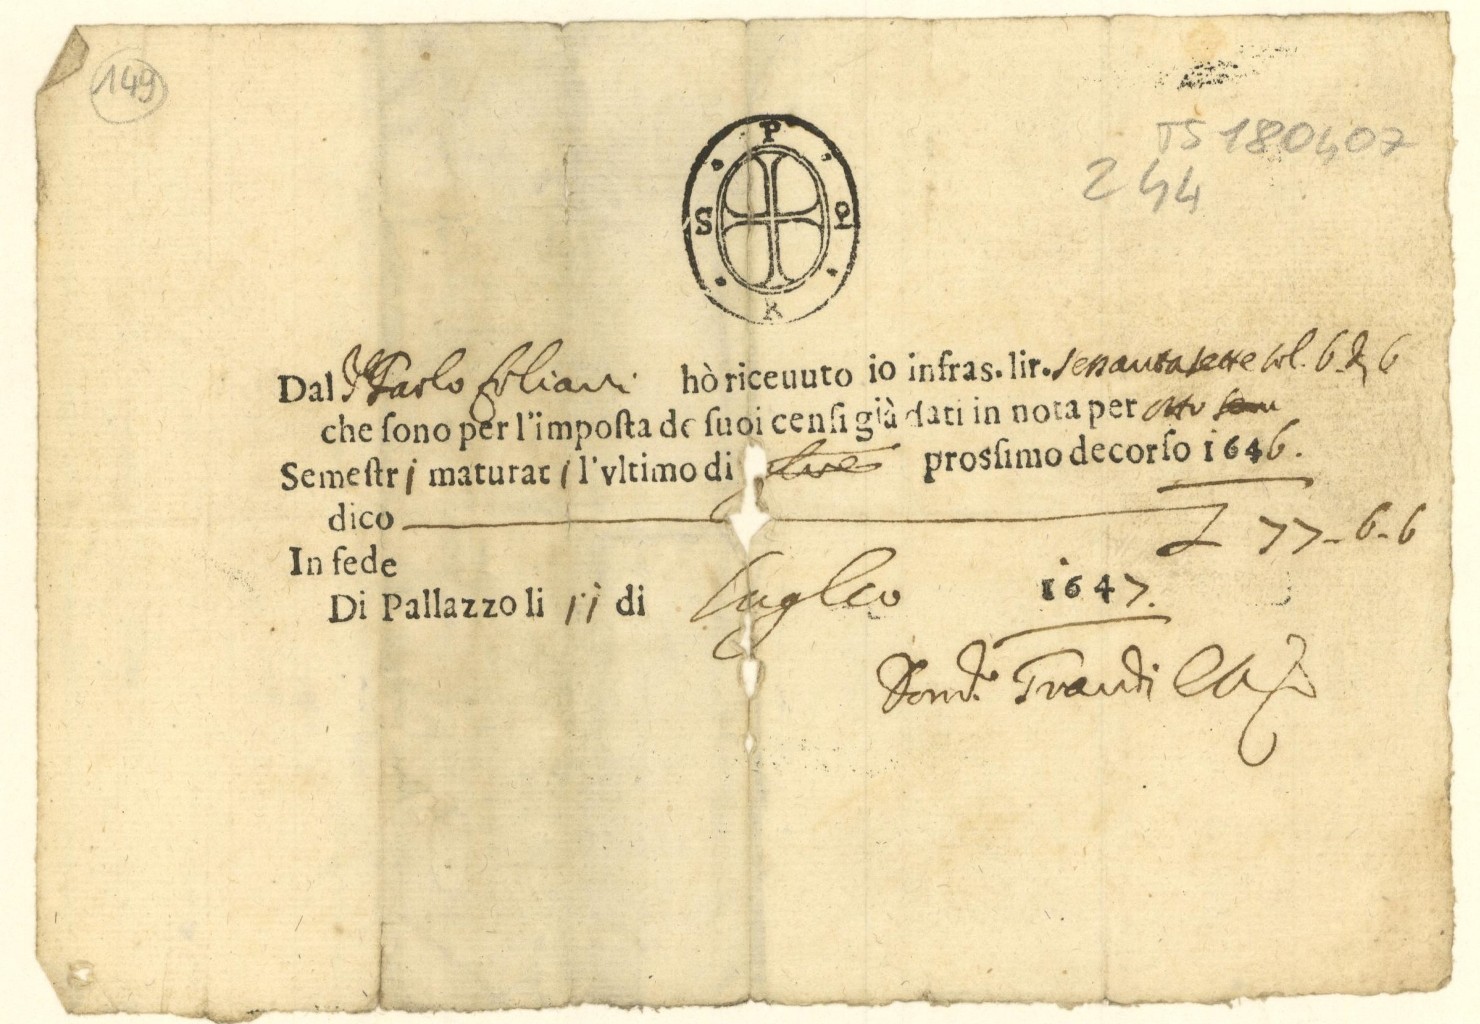 149
TS 180407
244
P
S Q
R
Dal Sr Paolo hò riceuuto io infras. lir. settantasette sol. 6. d. 6
che sono per l'imposta de suoi censi già dati in nota per otto
Semestri maturati l'vltimo di prossimo decorso 1646.
dico L 77-6-6
In fede
Di Pallazzo li 11 di Luglio 1647.